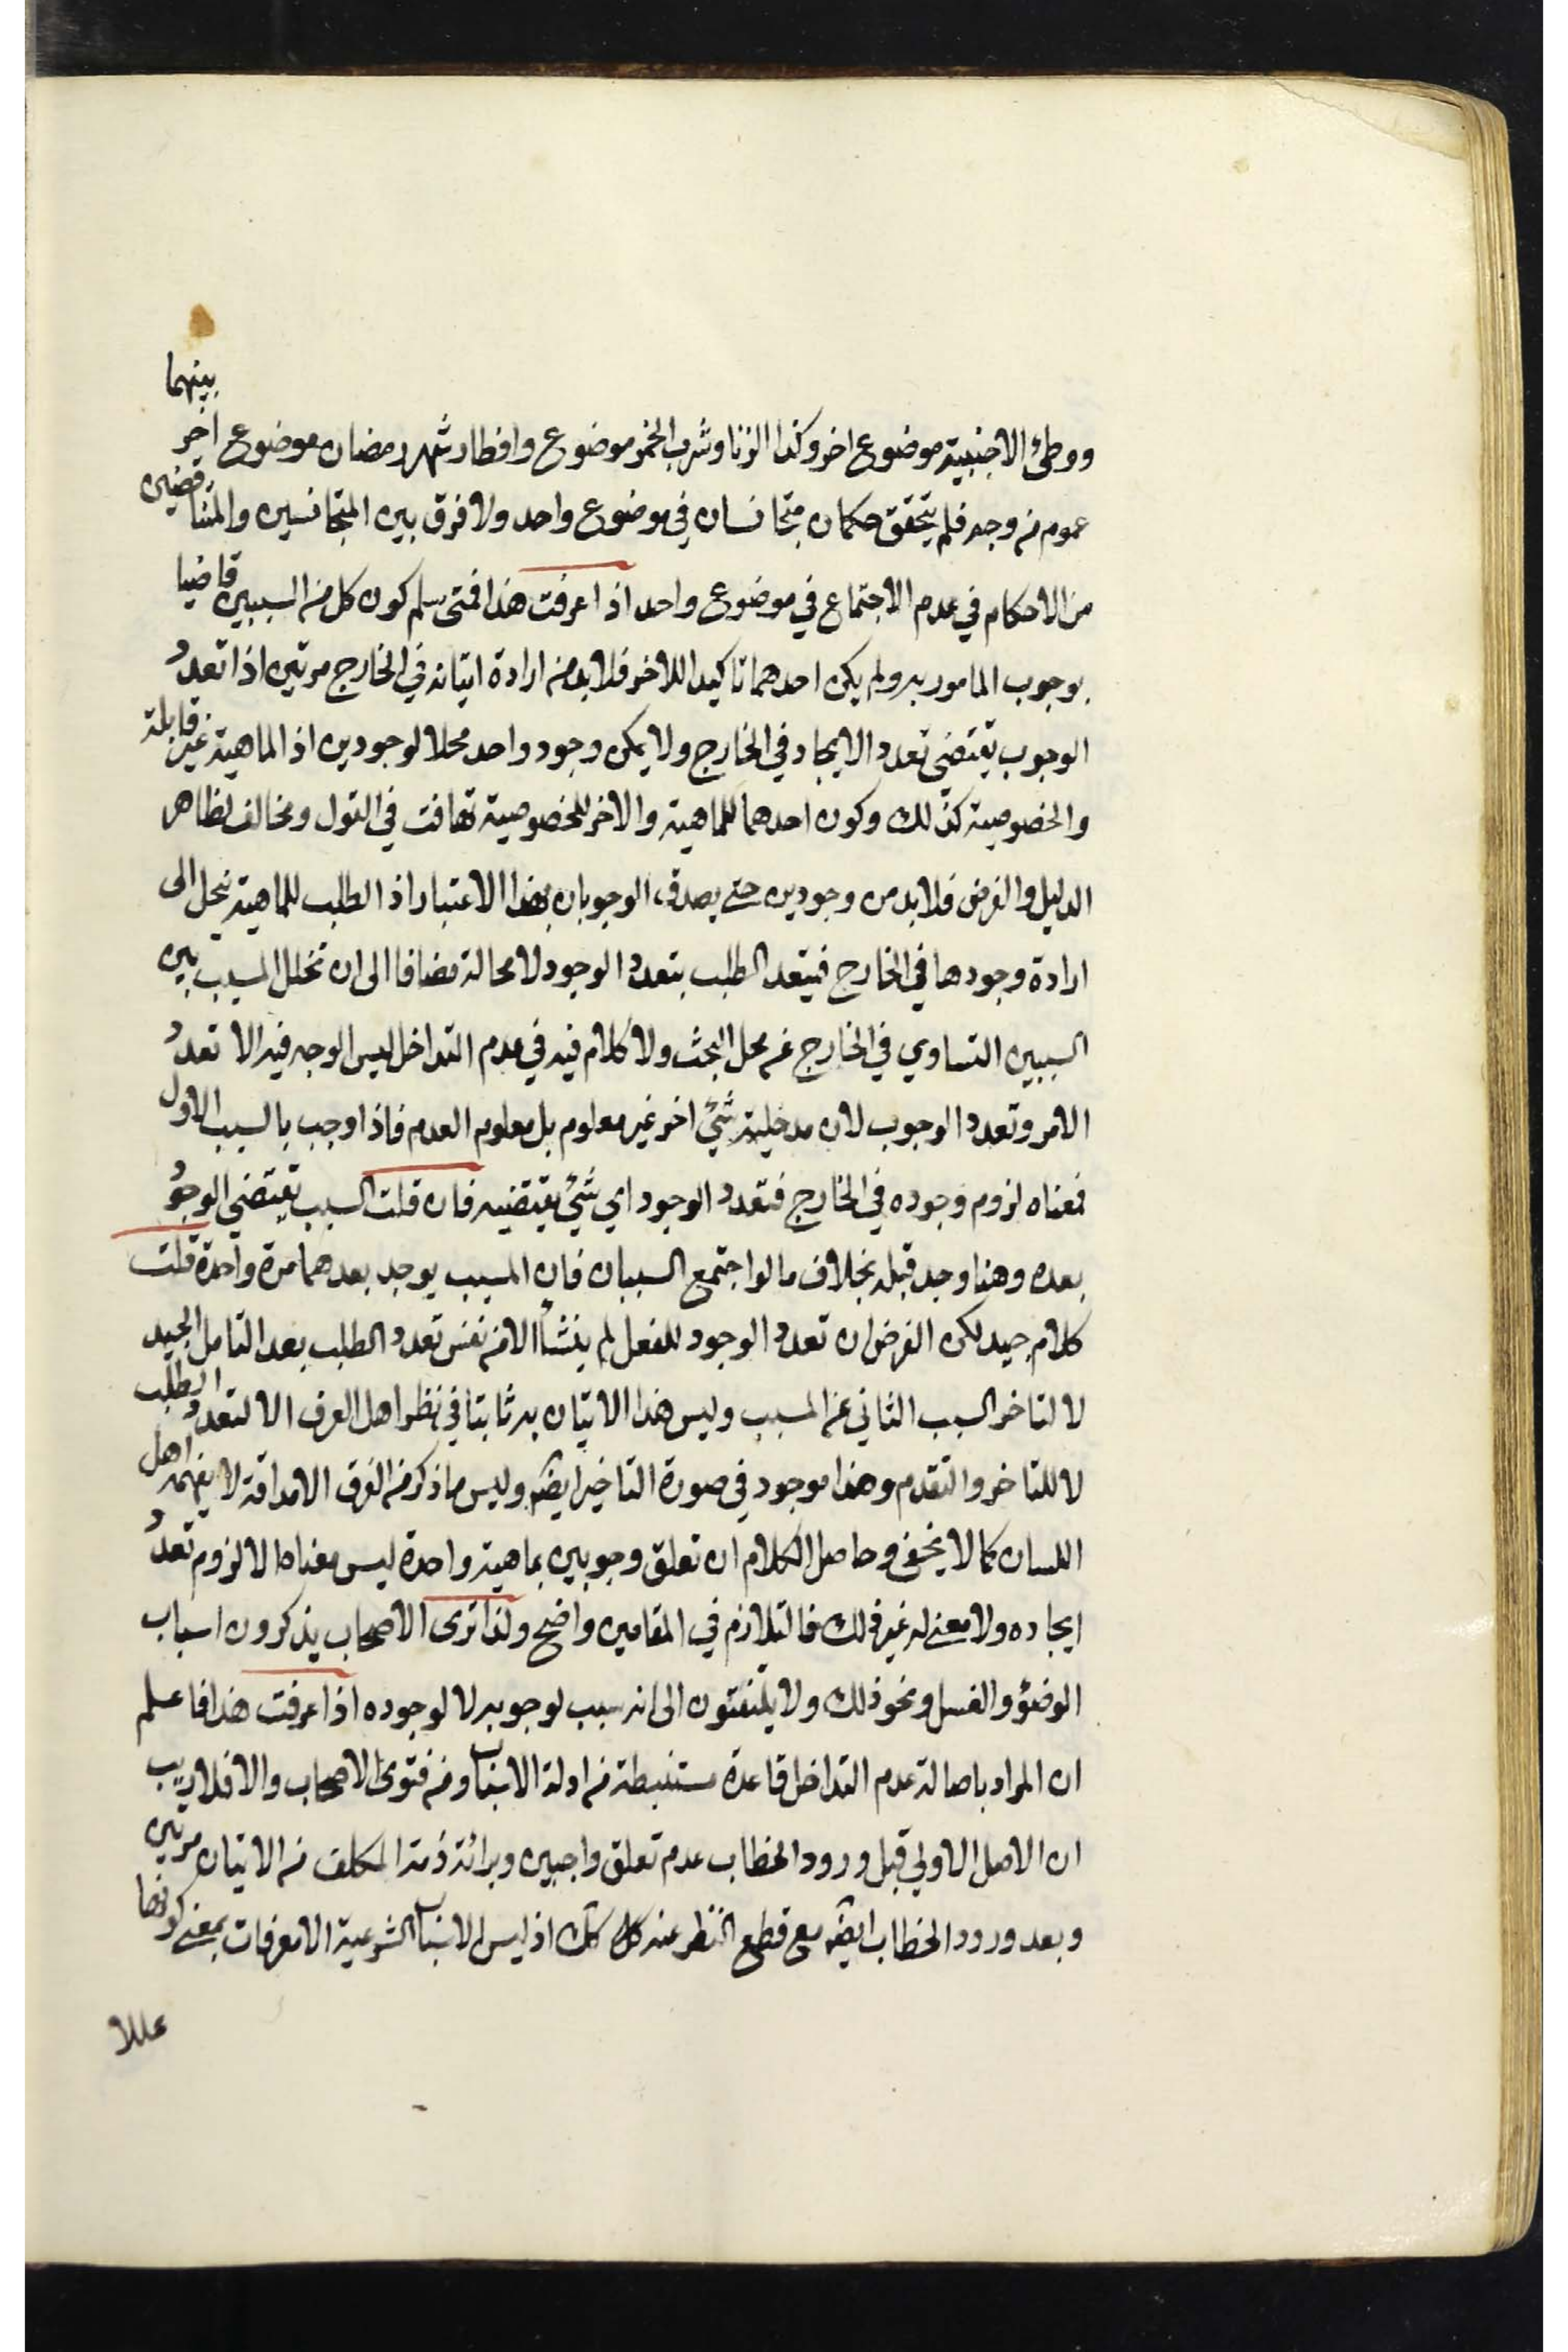 ووطئ الاجنبية موضوع اخر وكذا الزنا وشرب الخمر موضوع وافطار شهر رمضان موضوع اخر بينهما
عموم من وجه فلم يتحقق حكمان متجانسان في موضوع واحد ولا فرق بين المتجانسين والمتناقضين
من الاحكام في عدم الاجتماع في موضوع واحد اذا عرفت هذا فمتى سلم كون كل من السببين قاضيا
بوجوب المامور به ولم يكن احدهما تاكيدا للاخر فلا بد من ارادة اتيانه في الخارج مرتين اذا تعدد
الوجوب يقتضي تعدد الايجاد في الخارج ولا يمكن وجود واحد محلا لوجودين اذ الماهية غير قابلة
والخصوصية كذلك وكون احدهما للماهية والاخر للخصوصية تهافت في القول ومخالف لظاهر
الدليل والفرض فلا بد من وجودين حتى يصدق الوجوبان بهذا الاعتبار اذ الطلب للماهية ينحل الى
ارادة وجودها في الخارج فيتعدد الطلب بتعدد الوجود لا محالة مضافا الى ان تخلل المسبب بين
السببين التساوي في الخارج عن محل البحث ولا كلام فيه في عدم التداخل ليس الوجه فيه الا تعدد
الامر وتعدد الوجوب لان مدخلية شيء اخر غير معلوم بل معلوم العدم فاذا وجب بالسبب الاول
فمعناه لزوم وجوده في الخارج فتعدد الوجود اي شيء يقتضيه فان قلت السبب يقتضي الوجود
بعده وهنا وجد قبله بخلاف ما لو اجتمع السببان فان المسبب يوجد بعدهما مرة واحدة قلت
كلام جيد لكن الفرض ان تعدد الوجود للفعل لم ينشأ الا من نفس تعدد الطلب بعد التامل الجيد
لا لتاخر السبب الثاني عن المسبب وليس هذا الاتيان به ثابتا في نظر اهل العرف الا لتعدد الطلب
لا للتاخر والتقدم وهذا موجود في صورة التاخير ايضا وليس ما ذكر من الفرق الا مداقة لا يفهمه اهل
اللسان كما لا يخفى وحاصل الكلام ان تعلق وجوبين بماهية واحدة ليس معناه الا لزوم تعدد
ايجاده ولا معنى له غير ذلك فالتلازم في المقامين واضح ولذا ترى الاصحاب يذكرون اسباب
الوضوء والغسل ونحو ذلك ولا يلتفتون الى انه سبب لوجوبه لا لوجوده اذا عرفت هذا فاعلم
ان المراد باصالة عدم التداخل قاعدة مستنبطة من ادلة الاسباب ومن فتوى الاصحاب والا فلا ريب
ان الاصل الاولي قبل ورود الخطاب عدم تعلق واجبين وبرائة ذمة المكلف من الاتيان مرتين
وبعد ورود الخطاب ايضا مع قطع النظر عنه كذلك اذ ليس الاسباب الشرعية الا معرفات بمعنى كونها
عللا